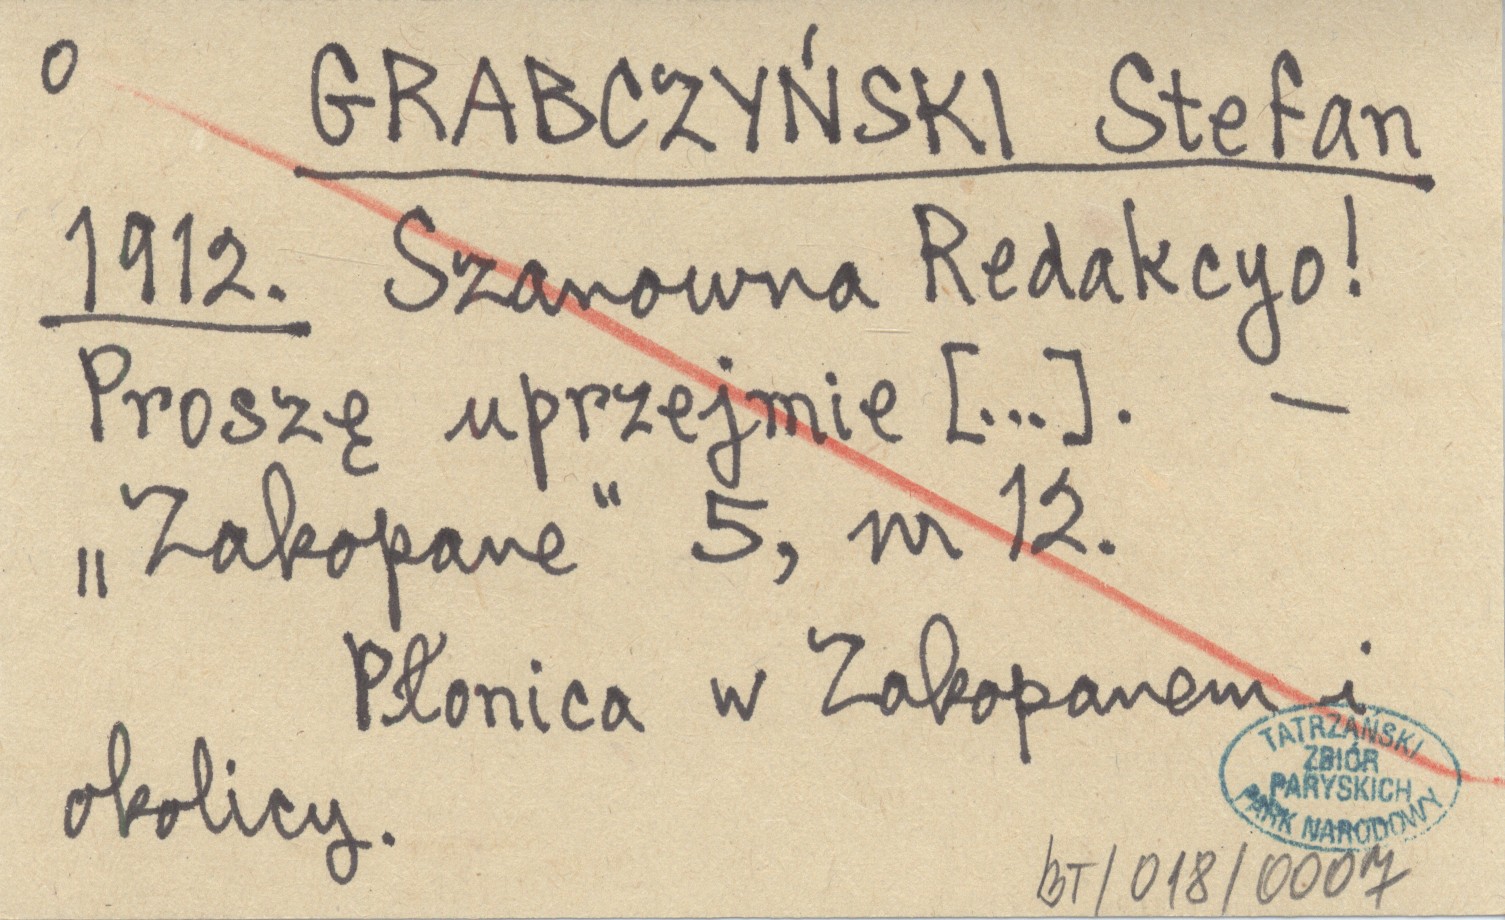 o GRABCZYŃSKI Stefan
1912. Szanowna Redakcyo!
Proszę uprzejmie [...]. —
„Zakopane“ 5, nr 12.
Płonica w Zakopanem i
okolicy.
TATRZAŃSKI
ZBIÓR
PARYSKICH
PARK NARODOWY
BT/018/0007